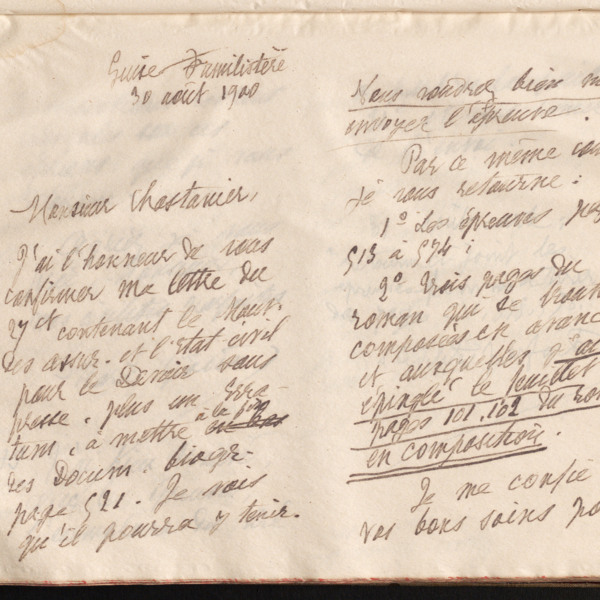 Guise Familistère
30 août 1900
Monsieur Chastanier,
J'ai l'honneur de vous
confirmer ma lettre du
27 ct contenant le Mouv.
des assur. et l'état civil
pour le Devoir sous
presse, plus un erra-
tum, à mettre à la fin au bas
des Docum. biogr.
page 521. Je vois
qu'il pourra y tenir.
Vous voudrez bien m'
envoyer l'épreuve.
Par ce même cou
je vous retourne :
1° Les épreuves pag
513 à 574 ;
2° trois pages du
roman qui se trouv
composées en avanc
et auxquelles j'ai
épinglé le feuillet
pages 101.102 du rom
en composition.
Je me confie
vos bons soins po